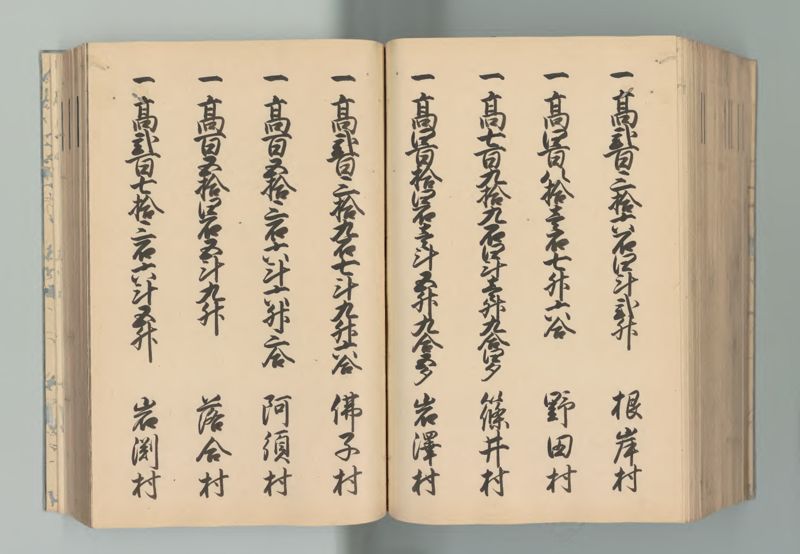 一 高弐百三拾六石四斗弐升 根岸村
一 高四百八拾壱石七升六合 野田村
一 高七百九拾九石四斗壱升九合四夕 篠井村
一 高四百拾四石壱斗五升九合五夕 岩澤村
一 高弐百三拾九石七斗九升六合 佛子村
一 高百五拾三石六斗六升三合 阿須村
一 高百五拾四石五斗九升 落合村
一 高弐百七拾三石六斗五升 岩渕村